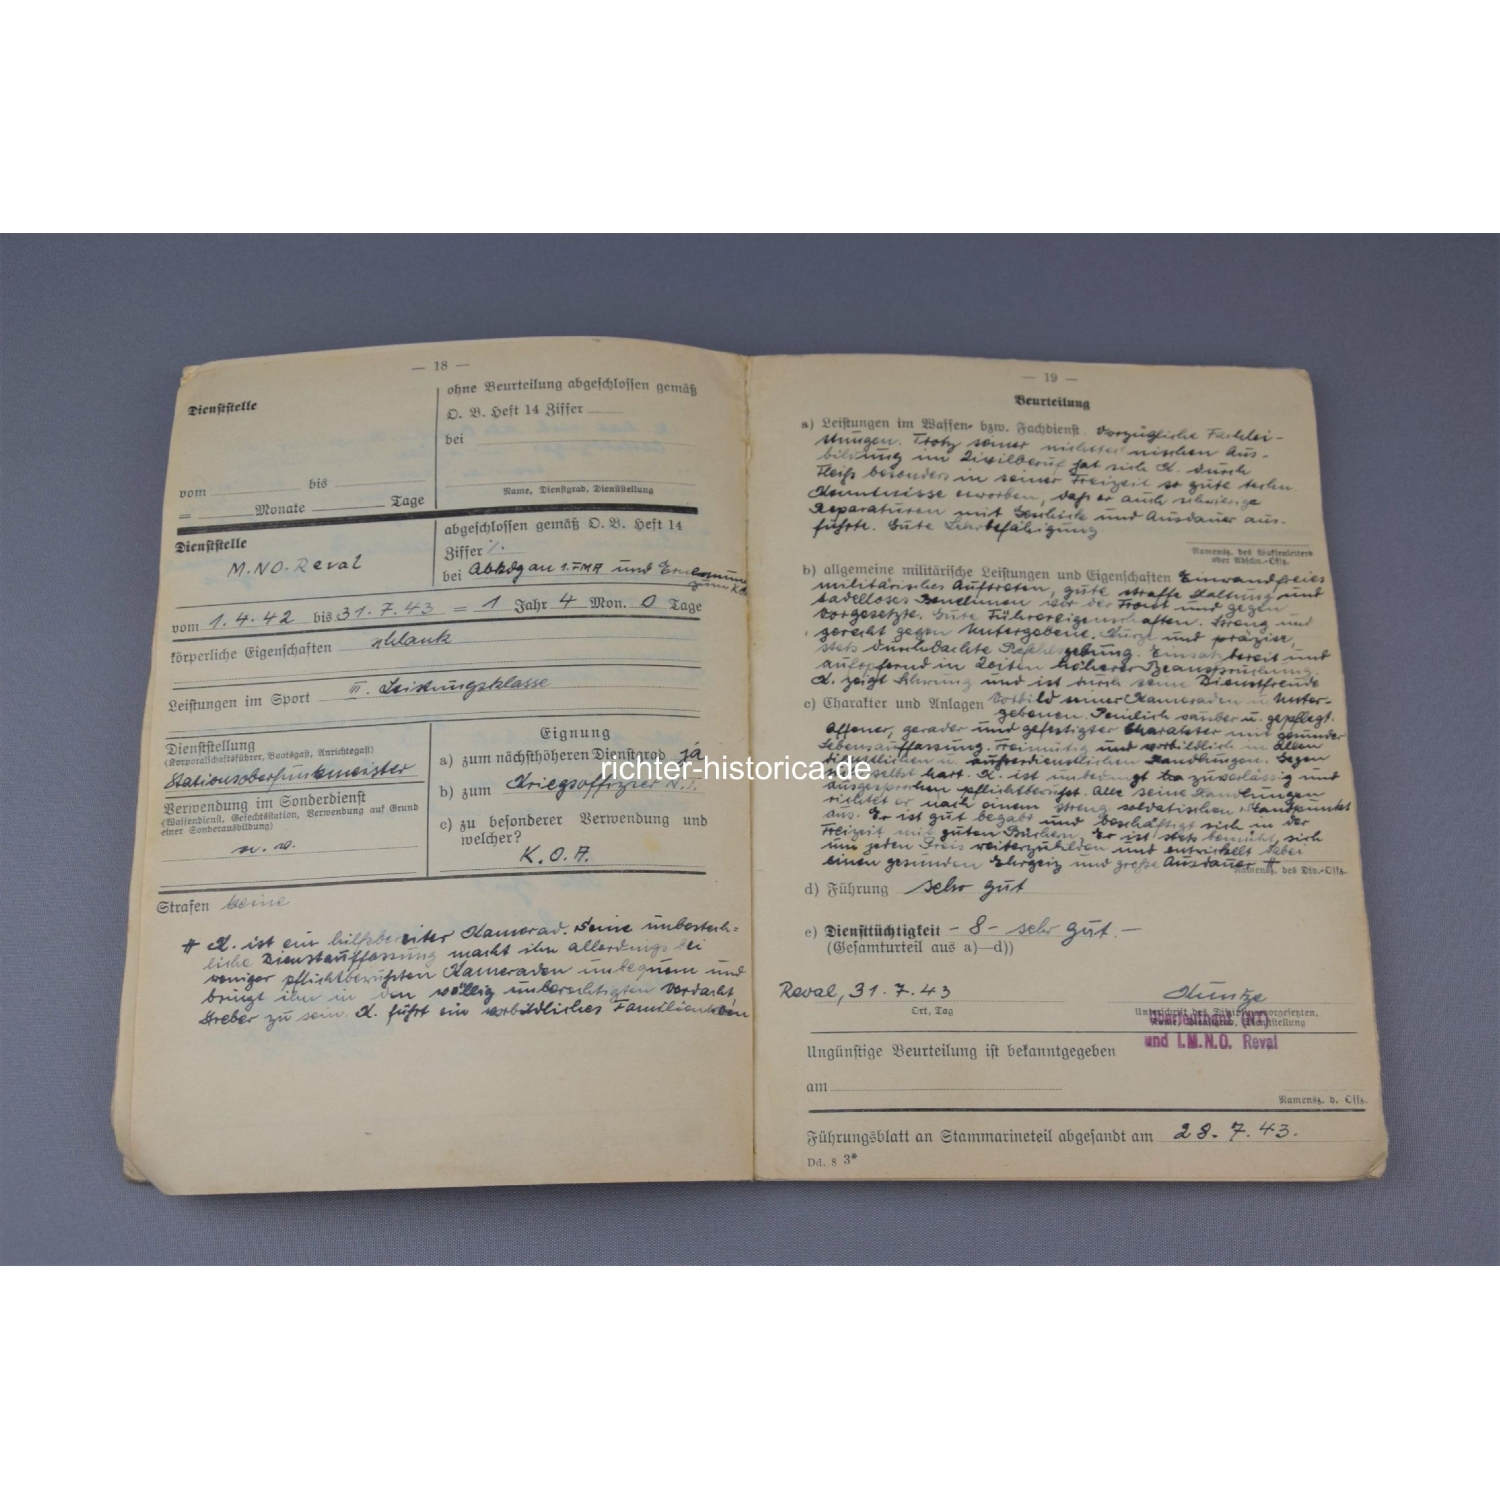 — 18 —
Dienststelle
vom bis
= Monate Tage
ohne Beurteilung abgeschlossen gemäß
O. B. Heft 14 Ziffer
bei
Name, Dienstgrad, Dienststellung
Dienststelle
M.NO. Reval
abgeschlossen gemäß O. B. Heft 14
Ziffer
bei Abkdg an 1. FMA und Ernennung
zum
vom 1.4.42 bis 31.7.43 = 1 Jahr 4 Mon. 0 Tage
körperliche Eigenschaften schlank
Leistungen im Sport III. Leistungsklasse
Dienststellung
(Korporalschaftsführer, Bootsgast, Anrichtegast)
Stationsoberfunkmeister
Verwendung im Sonderdienst
(Waffendienst, Gefechtsstation, Verwendung auf Grund
einer Sonderausbildung)
Eignung
a) zum nächsthöheren Dienstgrad ja
b) zum Kriegsoffizier N.T.
c) zu besonderer Verwendung und
welcher?
K.O.A.
Strafen keine
# K. ist ein hilfsbereiter Kamerad. Seine unbestech-
liche Dienstauffassung macht ihn allerdings bei
weniger pflichtbewußten Kameraden unbequem und
bringt ihn in den völlig unberechtigten Verdacht,
Streber zu sein. K. führt ein vorbildliches Familienleben
— 19 —
Beurteilung
a) Leistungen im Waffen- bzw. Fachdienst Vorzügliche Fachlei-
stungen. Trotz seiner nichttechnischen Aus-
bildung im Zivilberuf hat sich K. durch
Fleiß besonders in seiner Freizeit so gute techn
Kenntnisse erworben, daß er auch schwierige
Reparaturen mit Geschick und Ausdauer aus-
führte. Gute Lehrbefähigung
Namensz. des Waffenleiters
oder Abschn.-Offz.
b) allgemeine militärische Leistungen und Eigenschaften Einwandfreies
militärisches Auftreten, gute straffe Haltung und
tadelloses Benehmen vor der Front und gegen
Vorgesetzte. Gute Führereigenschaften. Streng und
gerecht gegen Untergebene. Kurze und präzise,
stets durchdachte Befehlsgebung. Einsatzbereit und
aufopfernd in Zeiten höherer Beanspruchung.
K. zeigt Schwung und ist durch seine Dienstfreude
c) Charakter und Anlagen Vorbild seiner Kameraden u. Unter-
gebenen. Peinlich sauber u. gepflegt.
Offener, gerader und gefestigter Charakter mit gesunder
Lebensauffassung. Freimütig und vorbildlich in allen
dienstlichen u. außerdienstlichen Handlungen. Gegen
sich selbst hart. K. ist unbedingt zuverlässig und
ausgesprochen pflichtbewußt. Alle seine Handlungen
richtet er nach einem streng soldatischen Standpunkt
aus. Er ist gut begabt und beschäftigt sich in der
Freizeit mit guten Büchern. Er ist stets bemüht, sich
um jeden Preis weiterzubilden und entwickelt dabei
einen gesunden Ehrgeiz und große Ausdauer #
Namensz. des Div.-Offz.
d) Führung sehr gut
e) Diensttüchtigkeit – 8 – sehr gut. –
(Gesamturteil aus a)—d))
Reval, 31.7.43
Ort, Tag
Kuntze
Unterschrift des Disziplinarvorgesetzten,
Name, Dienstgrad, Dienststellung
Oberleutnant (NT)
und L.M.N.O. Reval
Ungünstige Beurteilung ist bekanntgegeben
am
Namensz. d. Offz.
Führungsblatt an Stammarineteil abgesandt am 28.7.43.
Dd. 8 3*
richter-historica.de